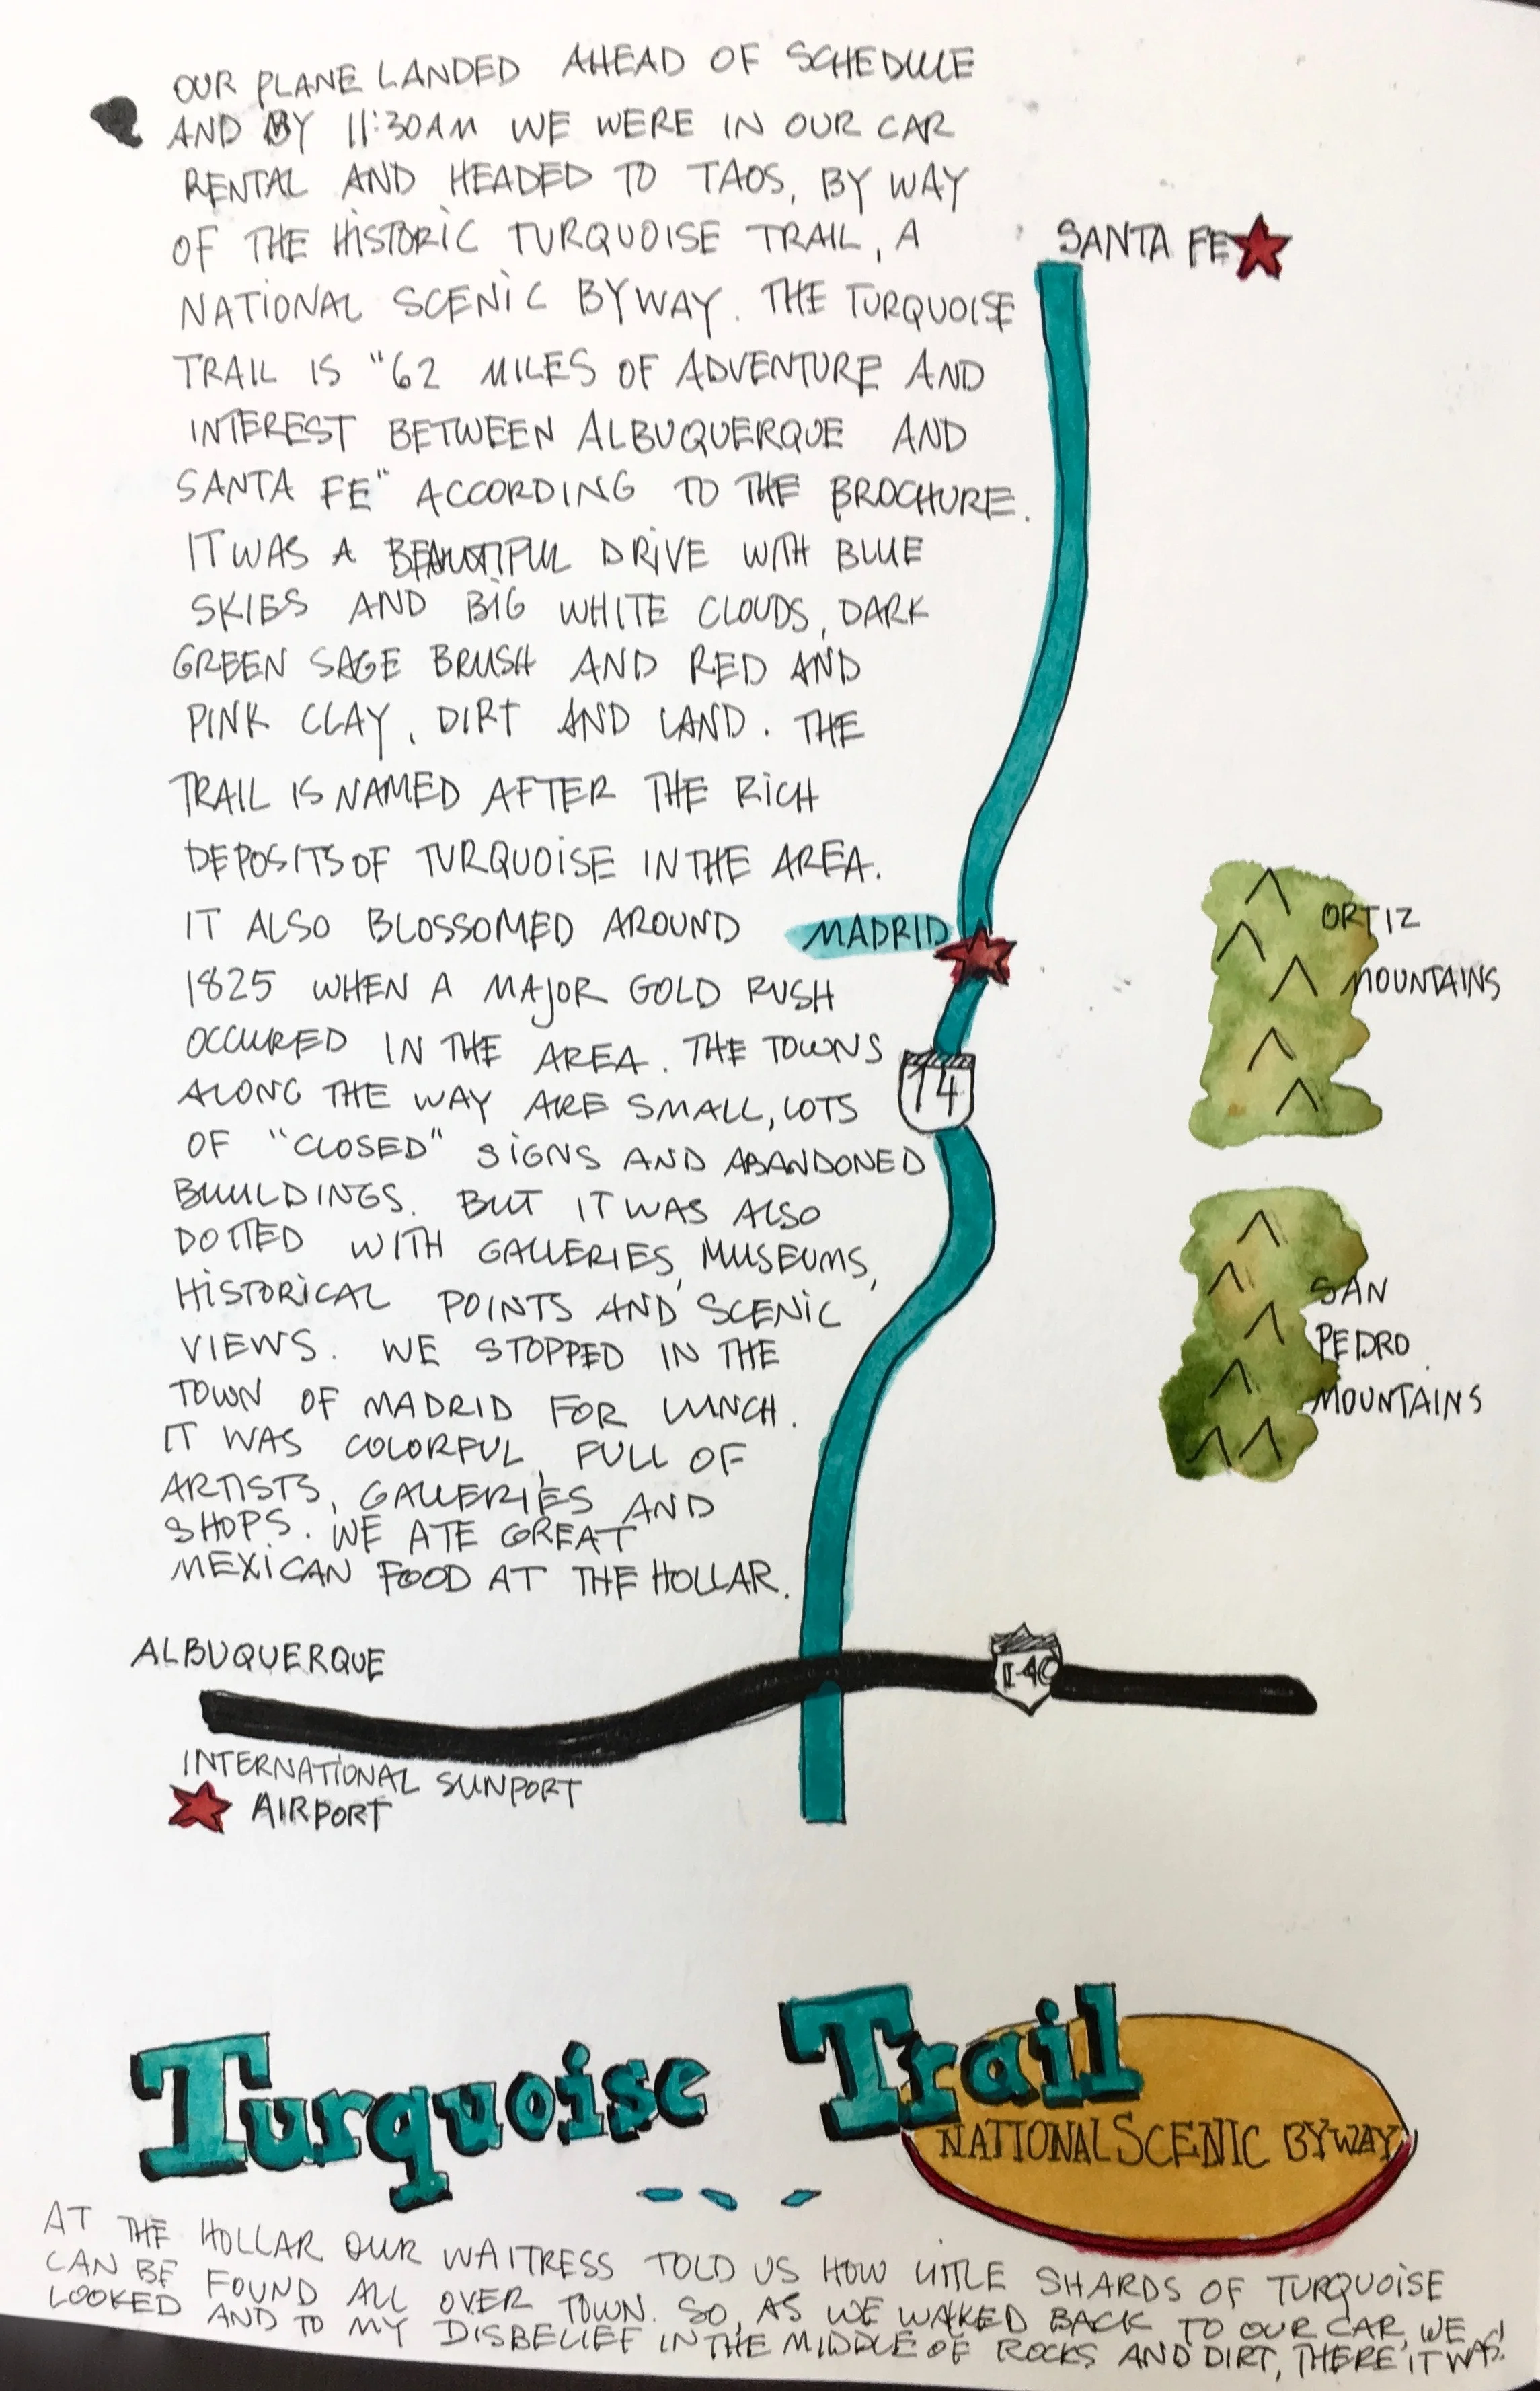 OUR PLANE LANDED AHEAD OF SCHEDULE
AND BY 11:30AM WE WERE IN OUR CAR
RENTAL AND HEADED TO TAOS, BY WAY
OF THE HISTORIC TURQUOISE TRAIL, A
NATIONAL SCENIC BYWAY. THE TURQUOISE
TRAIL IS "62 MILES OF ADVENTURE AND
INTEREST BETWEEN ALBUQUERQUE AND
SANTA FE" ACCORDING TO THE BROCHURE.
IT WAS A BEAUTIFUL DRIVE WITH BLUE
SKIES AND BIG WHITE CLOUDS, DARK
GREEN SAGE BRUSH AND RED AND
PINK CLAY, DIRT AND LAND. THE
TRAIL IS NAMED AFTER THE RICH
DEPOSITS OF TURQUOISE IN THE AREA.
IT ALSO BLOSSOMED AROUND
1825 WHEN A MAJOR GOLD RUSH
OCCURED IN THE AREA. THE TOWNS
ALONG THE WAY ARE SMALL, LOTS
OF "CLOSED" SIGNS AND ABANDONED
BUUILDINGS. BUT IT WAS ALSO
DOTTED WITH GALLERIES, MUSEUMS,
HISTORICAL POINTS AND SCENIC
VIEWS. WE STOPPED IN THE
TOWN OF MADRID FOR LUNCH.
IT WAS COLORFUL, FULL OF
ARTISTS, GALLERIES AND
SHOPS. WE ATE GREAT
MEXICAN FOOD AT THE HOLLAR.
SANTA FE
MADRID
14
ORTIZ
MOUNTAINS
SAN
PEDRO
MOUNTAINS
ALBUQUERQUE
I-40
INTERNATIONAL SUNPORT
AIRPORT
Turquoise Trail
NATIONAL SCENIC BYWAY
AT THE HOLLAR OUR WAITRESS TOLD US HOW LITTLE SHARDS OF TURQUOISE
CAN BE FOUND ALL OVER TOWN. SO, AS WE WALKED BACK TO OUR CAR, WE
LOOKED AND TO MY DISBELIEF IN THE MIDDLE OF ROCKS AND DIRT, THERE IT WAS!